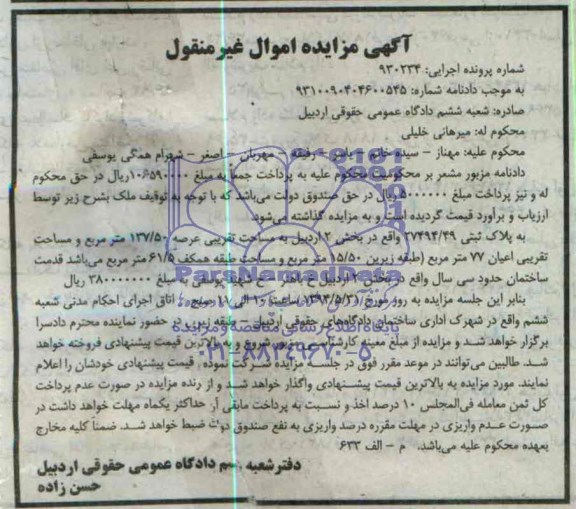 آگهی مزایده اموال غیرمنقول
شماره پرونده اجرایی: ۹۳۰۲۳۴
به موجب دادنامه شماره: ۹۳۱۰۰۹۰۴۰۴۶۰۰۵۴۵
صادره: شعبه ششم دادگاه عمومی حقوقی اردبیل
محکوم له: میرهانی خلیلی
محکوم علیه: مهناز – سیده خانم – رامین – رفیقه – مهربان – اصغر – شهرام همگی یوسفی
دادنامه مزبور مشعر بر محکومیت محکوم علیه به پرداخت جمعا به مبلغ ۱۰۶۵۹۰۰۰۰ ریال در حق محکوم
له و نیز پرداخت مبلغ ۵۰۰۰۰۰۰ ریال در حق صندوق دولت می‌باشد که با توجه به توقیف ملک بشرح زیر توسط
ارزیاب و برآورد قیمت گردیده است و به مزایده گذاشته می‌شود
به پلاک ثبتی ۲۷۴۹۴/۴۹ واقع در بخش ۲ اردبیل به مساحت تقریبی عرصه ۱۳۷/۵۰ متر مربع و مساحت
تقریبی اعیان ۷۷ متر مربع (طبقه زیرین ۱۵/۵۰ متر مربع و مساحت طبقه همکف ۶۱/۵ متر مربع می‌باشد قدمت
ساختمان حدود سی سال واقع در بخش ۲ اردبیل خ باهنر – خ شهید یوسفی به مبلغ ۳۸۰۰۰۰۰۰۰ ریال
بنابر این جلسه مزایده به روز مورخ ۱۳۹۴/۵/۳۱ ساعت ۱۰ الی ۱۱ صبح در اتاق اجرای احکام مدنی شعبه
ششم واقع در شهرک اداری ساختمان دادگاه‌های حقوقی اردبیل – طبقه زیرین در حضور نماینده محترم دادسرا
برگزار خواهد شد و مزایده از مبلغ معینه کارشناسی مزبور شروع و به بالاترین قیمت پیشنهادی فروخته خواهد
شد. طالبین می‌توانند در موعد مقرر فوق در جلسه مزایده شرکت نموده و قیمت پیشنهادی خودشان را اعلام
نمایند. مورد مزایده به بالاترین قیمت پیشنهادی واگذار خواهد شد و از رنده مزایده در صورت عدم پرداخت
کل ثمن معامله فی‌المجلس ۱۰ درصد اخذ و نسبت به پرداخت مابقی آن حداکثر یکماه مهلت خواهد داشت در
صورت عدم واریزی در مهلت مقرره درصد واریزی به نفع صندوق دولت ضبط خواهد شد. ضمنا کلیه مخارج
بعهده محکوم علیه می‌باشد. م – الف ۶۳۳
دفتر شعبه ششم دادگاه عمومی حقوقی اردبیل
حسن زاده
ParsNamadData
پایگاه اطلاع رسانی مناقصه و مزایده
۰۲۱-۸۸۳۴۹۶۷۰-۵